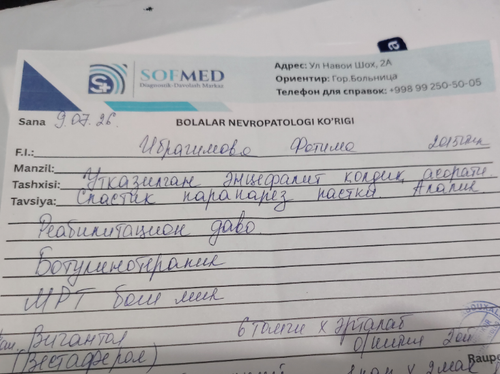 SOFMED
Diagnostik-Davolash Markaz
Адрес: Ул Навои Шох, 2А
Ориентир: Гор.Больница
Телефон для справок: +998 99 250-50-05
Sana 9.07.26. BOLALAR NEVROPATOLOGI KO'RIGI
F.I.: Ибрагимова Фотима 2015йил
Manzil:
Tashxisi: Утказилган энцефалит колдик асорати.
Tavsiya: Спастик парапарез пастки. Алалия
Реабилитацион даво.
Ботулинотерапия
МРТ бош мия
Вигантол 6 томчи х эрталаб
(Вестаферол) 2 ой
Raupo